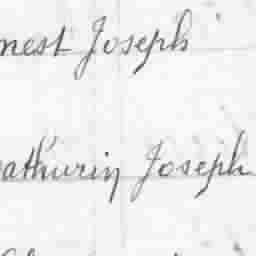 nest Joseph
athurin Joseph